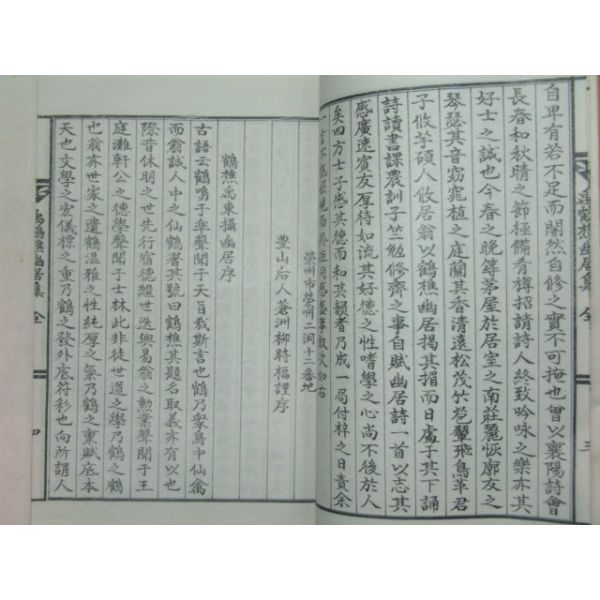 自卑有若不足而闇然自修之實不可掩也曾以襄陽詩會
長春和秋晴之節極備肴樽招請詩人終致吟咏之樂亦其
好士之誠也今春之晚尋茅屋於居室之南莊麗恢廓友之
琴瑟其音窈窕植之庭蘭其香清遠松茂竹苞翬飛鳥革君
子攸芋碩人攸居翁以鶴樵幽居揭其楣而日處于其下誦
詩讀書課農訓子竺勉修齊之事自賦幽居詩一首以志其
感廣速賓友厚待如流其好德之性嗜學之心尚不後於人
矣四方士子感其德而和其韻者乃成一局付梓之日責余
豊山后人蒼洲柳時福謹序
榮州市榮州二洞十二番地
鶴樵禹東攝幽居序
古語云鶴鳴于皐聲聞于天旨哉斯言也鶴乃衆鳥中仙禽
而翁誠人中之仙鶴署其號曰鶴樵其題名取義亦有以也
際昔休明之世先行宿德繼世迭興易翁之勲業聲聞于王
庭灘軒公之德學聲聞于士林此非徒世道之學乃鶴之鶴
也翁亦世家之遺鶴溫雅之性純厚之氣乃鶴之稟賦底本
天也文學之宏儀標之重乃鶴之發外底符彩也向所謂人
禹鶴樵幽居集 全 三
禹鶴樵幽居集 全 四